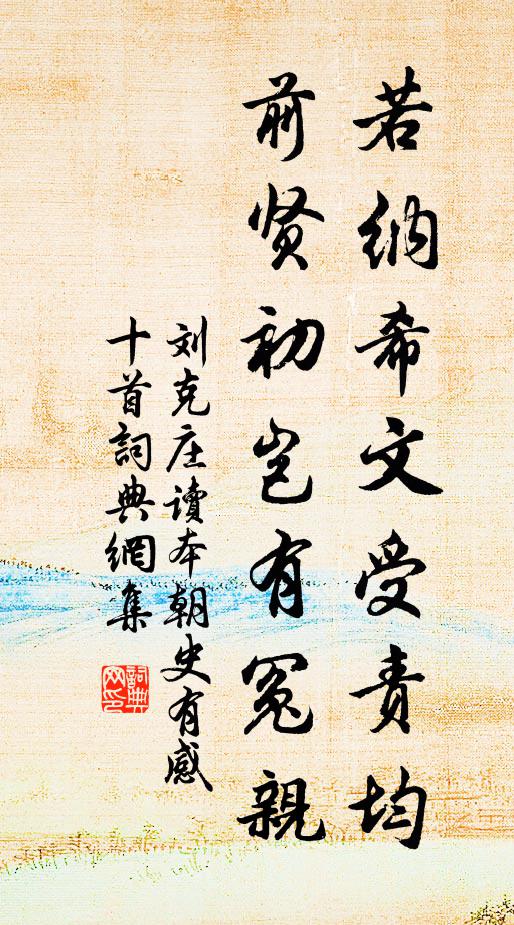 若纳希文受责均
前贤初岂有冤親
刘克庄讀本朝史有感
十首詞典網集
詞典
网印